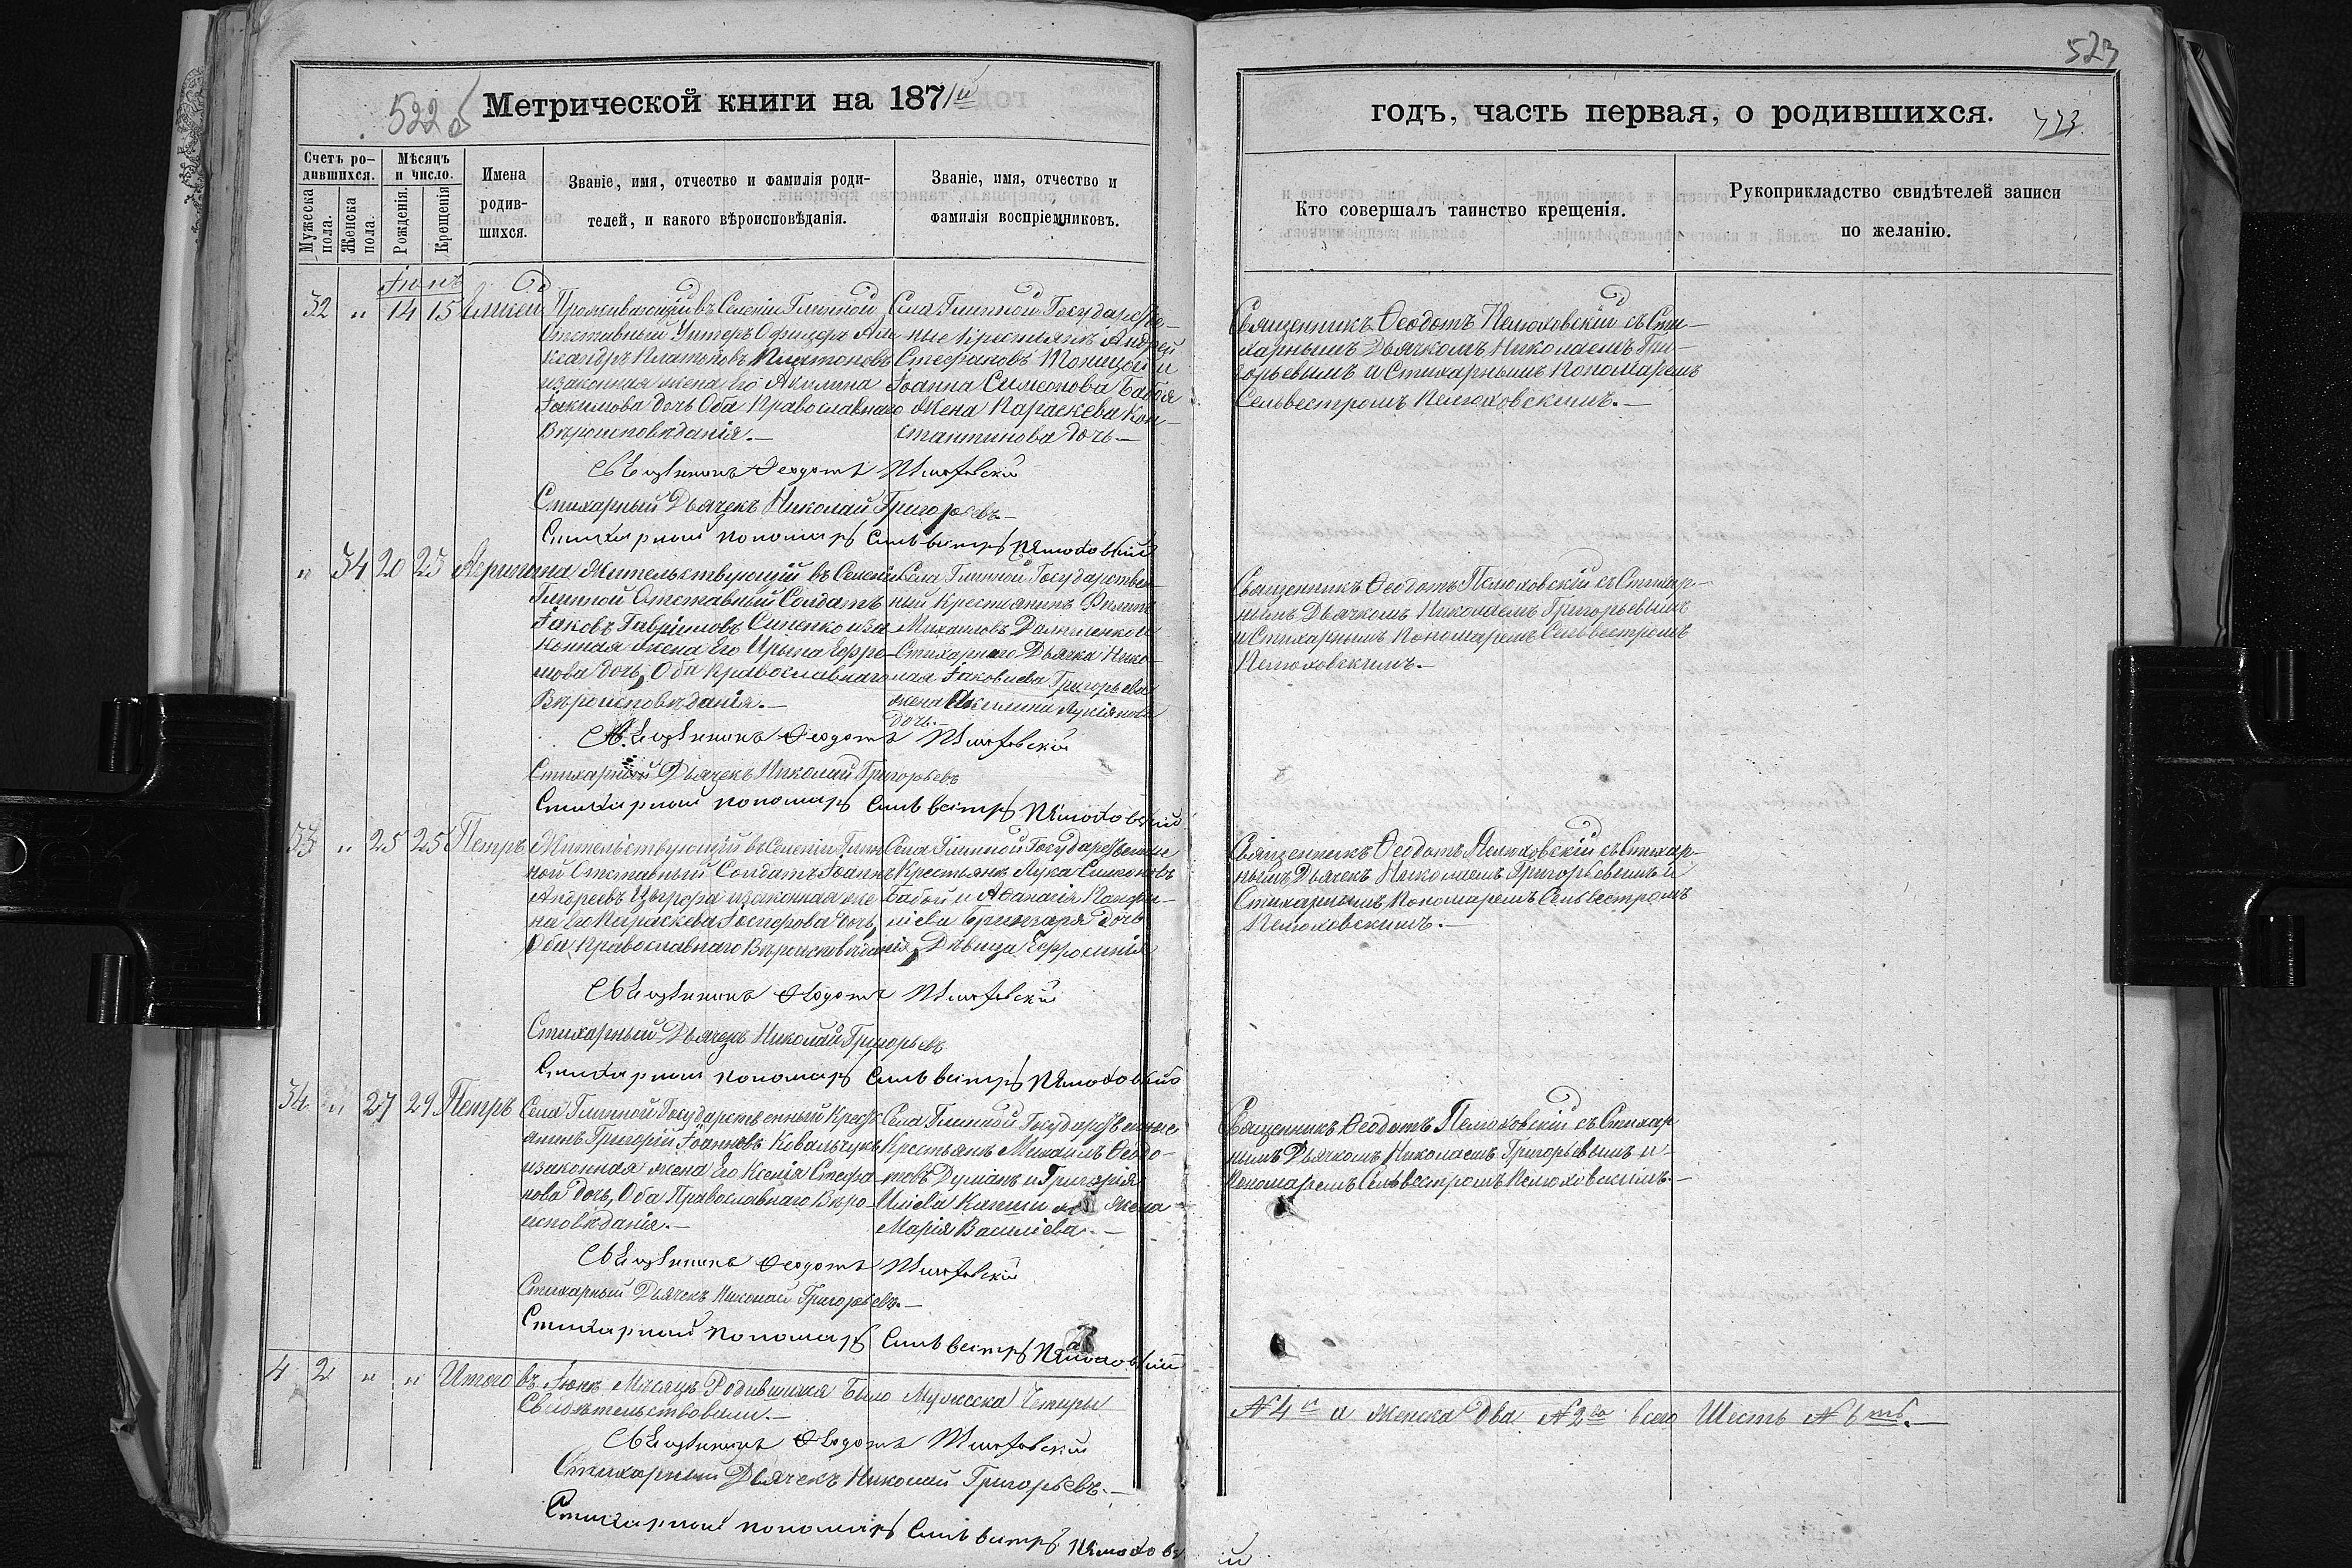 523
522 об
Метрической книги на 1871й
годъ, часть первая, о родившихся.
Счетъ ро-
дившихся.
Мѣсяцъ
и число.
Мужеска
пола.
Женска
пола.
Рожденія.
Крещенія
Имена
родив-
шихся.
Званіе, имя, отчество и фамилія роди-
телей, и какого вѣроисповѣданія.
Званіе, имя, отчество и
фамилія воспріемниковъ.
Кто совершалъ таинство крещенія.
Рукоприкладство свидѣтелей записи
по желанію.
Іюнь
32 " 14 15
Проживающій въ Селеніи Глинной
Отставный Унтеръ Офицеръ Але-
ксандръ Платоновъ
и законная жена Его Акилина
Іакимова дочь Оба Православнаго
Вѣроисповѣданія.—
Села Глинной Государствен-
ные Крестьянъ Андрей
Стефановъ и
Іоанна Симеонова Бабоя
Жена Параскева Кон-
стантинова дочь—
Священникъ Ѳеодотъ Пелюховскій съ Сти-
харнымъ Дьячкомъ Николаемъ Гри-
горьевымъ и Стихарнымъ Пономаремъ
Сельвестромъ Пелюховскимъ.—
Священникъ Ѳеодотъ Пелюховскій
Стихарный Дьячекъ Николай Григорьевъ—
Стихарный пономарь Сильвестръ Пелюховский
" 34 20 23 Агрипина
Жительствующій въ Селеніи
Глинной Отставный Солдатъ
Іаковъ Гавриловъ Синенко и за-
конная жена Его Ирина Ефре-
мова дочь, Оба Православнаго
Вѣроисповѣданія.—
Села Глинной Государствен-
ный Крестьянинъ Филипъ
Михаиловъ и
Стихарнаго Дьячка Нико-
лая Іаковлева Григорьева
жена Акилина Лукіянова
дочь.—
Священникъ Ѳеодотъ Пелюховскій съ Стихар-
нымъ Дьячкомъ Николаемъ Григорьевымъ
и Стихарнымъ Пономаремъ Сельвестромъ
Пелюховскимъ.—
Священникъ Ѳеодотъ Пелюховскій
Стихарный Дьячекъ Николай Григорьевъ
Стихарный пономарь Сильвестръ Пелюховский
33 " 25 25 Петръ
Жительствующій въ Селеніи Глин-
ной Отставный Солдатъ Іоаннъ
Андреевъ и законная же-
на Его Параскева дочь,
Оба Православнаго Вѣроисповѣданія,
Села Глинной Государственные
Крестьянъ Лука Симеоновъ
Бабой и Аѳанасія Панфи-
лиева дочь
Дѣвица Ефросинія
Священникъ Ѳеодотъ Пелюховскій съ Стихар-
нымъ Дьячек Николаемъ Григорьевымъ и
Стихарнымъ Пономаремъ Сельвестромъ
Пелюховскимъ.—
Священникъ Ѳеодотъ Пелюховскій
Стихарный Дьячекъ Николай Григорьевъ
Стихарный пономарь Сильвестръ Пелюховский
34 " 27 29 Петръ
Села Глинной Государственный Крестъ-
янинъ Григорій Іоанновъ Ковальчукъ
и законная жена Его Ксенія Стефа-
нова дочь, Оба Православнаго Вѣро-
исповѣданія.—
Села Глинной Государственные
Крестьянъ Михаилъ Ѳеодо-
товъ и Григорія
Илиева жена
Марія Василіева.—
Священникъ Ѳеодотъ Пелюховскій съ Стихар
нымъ Дьячкомъ Николаемъ Григорьевымъ и
Пономаремъ Сельвестромъ Пелюховскимъ.—
Священникъ Ѳеодотъ Пелюховскій
Стихарный Дьячекъ Николай Григорьевъ.—
Стихарный пономарь Сильвестръ Пелюховский
4 2 " " Итого въ Іюнѣ Мѣсяцѣ Родившихся Было Мужеска Четыры
№ 4е а Женска Два № 2ва всего Шесть № 6ть.—
Свидѣтельствовали.—
Священникъ Ѳеодотъ Пелюховскій
Стихарный Дьячекъ Николай Григорьевъ.—
Стихарный пономарь Сильвестръ Пелюховский